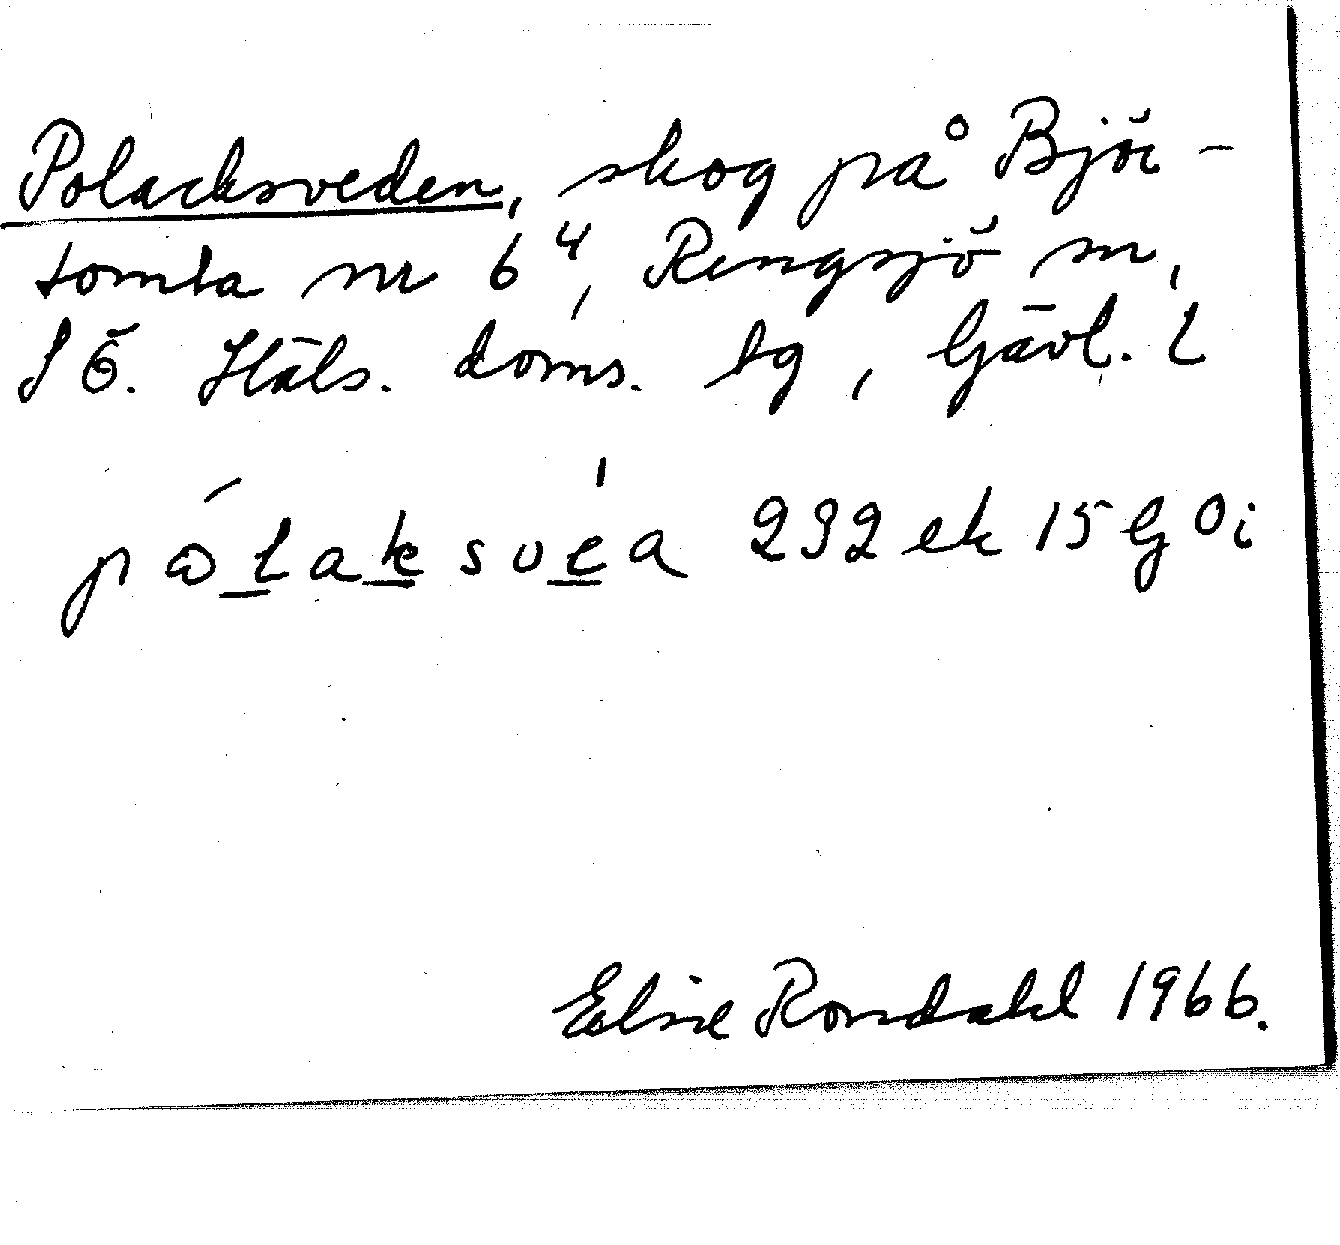 Polacksveden, skog på Björ-
tomta nr 6⁴, Rengsjö sn,
S Ö. Häls. doms. tg, Gävl. l
232 ek 15 G 0 i
Elsie Rondahl 1966.